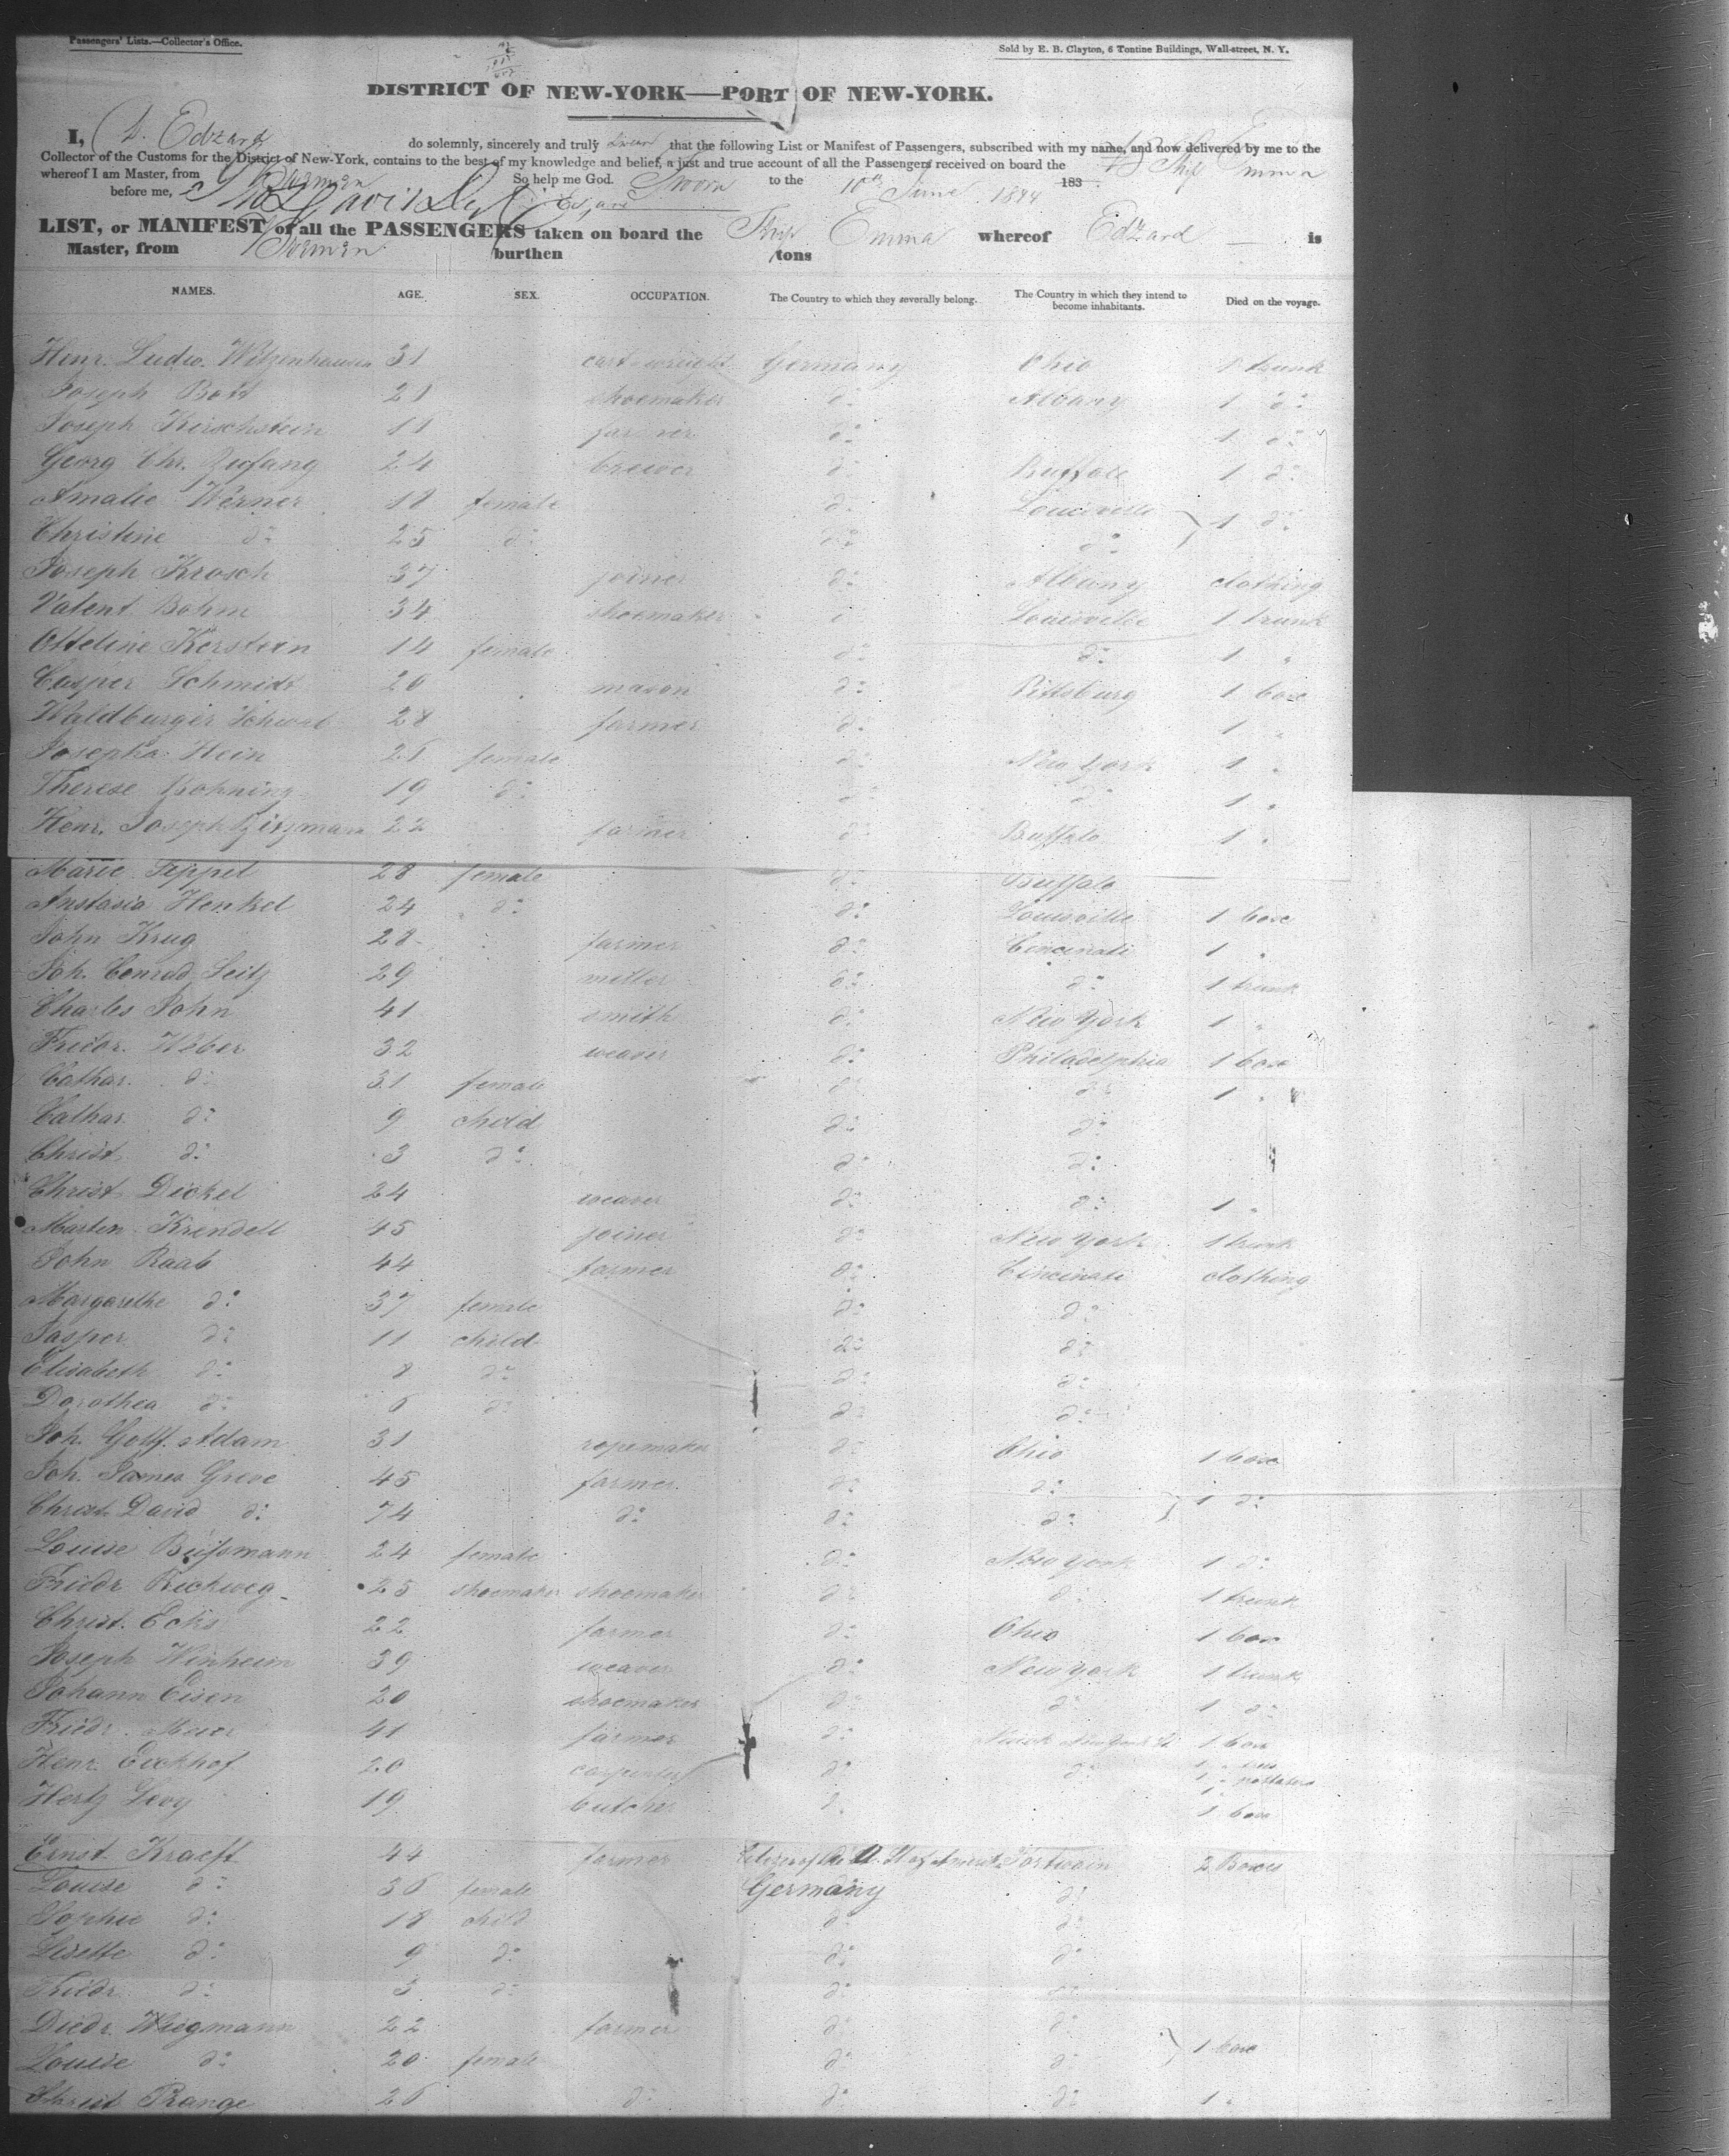 Passengers' Lists.—Collector's Office.
Sold by E. B. Clayton, 6 Tontine Buildings, Wall-street, N. Y.
DISTRICT OF NEW-YORK—PORT OF NEW-YORK.
I, Edzard do solemnly, sincerely and truly swear that the following List or Manifest of Passengers, subscribed with my name, and now delivered by me to the
Collector of the Customs for the District of New-York, contains to the best of my knowledge and belief, a just and true account of all the Passengers received on board the Ship Emma
whereof I am Master, from Bremen So help me God. Sworn to the 10th June 1844 183
before me,
LIST, or MANIFEST of all the PASSENGERS taken on board the Ship Emma whereof Edzard is
Master, from Bremen burthen tons
NAMES. AGE. SEX. OCCUPATION. The Country to which they severally belong. The Country in which they intend to become inhabitants. Died on the voyage.
Henr. Ludw. Witzenhausen 31 cartwright Germany Ohio 1 trunk
Joseph Bott 21 shoemaker do Albany 1 do
Joseph Kirschstein farmer do 1 do
Georg Chr. Zufang 24 brewer do Buffalo 1 do
Amalie Werner 18 female do Louisville 1 do
Christine do 25 do do do
Joseph Krosch 37 joiner do Albany clothing
Valent. Bohm 34 shoemaker Louisville 1 trunk
Otteline Kerstein 14 female do do 1 "
Casper Schmidt 20 mason do Pittsburg 1 box
Waldburger Schwab 28 farmer do 1 "
Josepha Hein 21 female do New York 1 "
Therese 19 do do do 1 "
Henr. Joseph 22 farmer do Buffalo 1 "
Marie Seppel 28 female do Buffalo
Anstasia Henkel 24 do do Louisville 1 box
John Krug 28 farmer do Cincinati 1 "
Joh. Conrad Seitz 29 miller do do 1 trunk
Charles John 41 smith do New York 1 "
Friedr. Weber 32 weaver do Philadelphia 1 box
Cathar. do 31 female do do 1 "
Cathar. do 9 child do do
Christ. do 3 do do do
Christ. Dickel 24 weaver do do 1 "
Martin Krendell 45 joiner do New York 1 trunk
John Raab 44 farmer do Cincinati clothing
Margarethe do 37 female do do
Jasper do 11 child do do
Elisabeth do 8 do do do
Dorothea do 6 do do do
Joh. Gottf. Adam 31 ropemaker do Ohio 1 box
Joh. James Greve 45 farmer do do 1 do
Christ. David do 74 do do do
Louise Bussmann 24 female do New York 1 do
Friedr. Rickweg 25 shoemaker shoemaker do do 1 trunk
Christ. Ecks 22 farmer do Ohio 1 box
Joseph Winheim 39 weaver do New York 1 trunk
Johann Eisen 20 shoemaker do do 1 do
Friedr. Meier 41 farmer do New York 1 box
Henr. Eickhof 20 carpenter do do 1
Hertz Levy 19 butcher do 1 box
Ernst Kraeft 44 farmer 2 Boxes
Louise do 36 female Germany do
Sophie do 18 child do do
Lisette do 9 do do do
Friedr. do 3 do do do
Diedr. Wiegmann 22 farmer do do 1 box
Louise do 20 female do do
Christ Prange 26 do do do 1 "